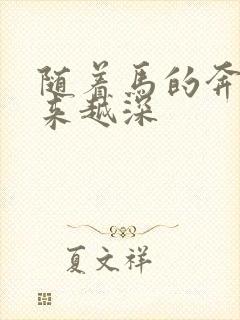 随着马的奔
来越深
夏文祥